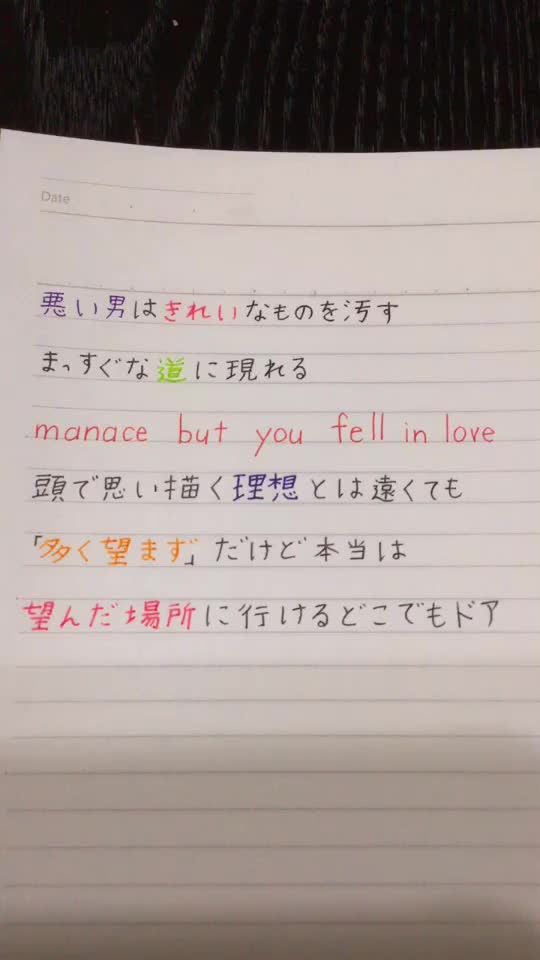 Date
悪い男はきれいなものを汚す
まっすぐな道に現れる
manace but you fell in love
頭で思い描く理想とは遠くても
「多く望まず」だけど本当は
望んだ場所に行けるどこでもドア